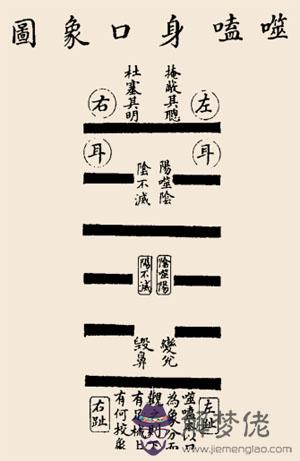 噬嗑身口象圖
左
掩蔽其聰
杜塞其明
右
耳
陽噬陰
陰不滅
耳
陰噬陽
陽不滅
變兌
毀鼻
左趾
噬嗑以口
為象分而
觀則下
有械上
有何校象
右趾
解夢佬